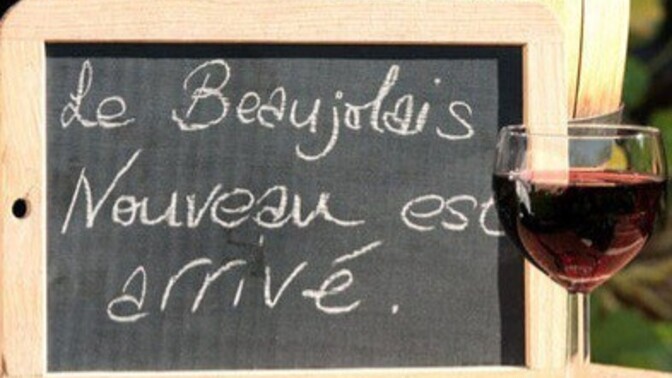 Le Beaujolais
Nouveau est
arrivé.